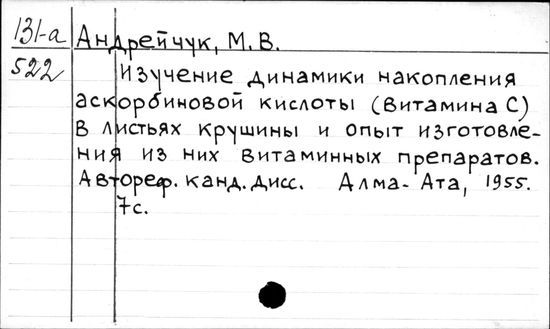 131-а Андрейчук, М. В.
522 Изучение динамики накопления
аскорбиновой кислоты (витамина С)
в листьях крушины и опыт изготовле-
ния из них витаминных препаратов.
Автореф. канд. дисс. Алма-Ата, 1955.
7с.